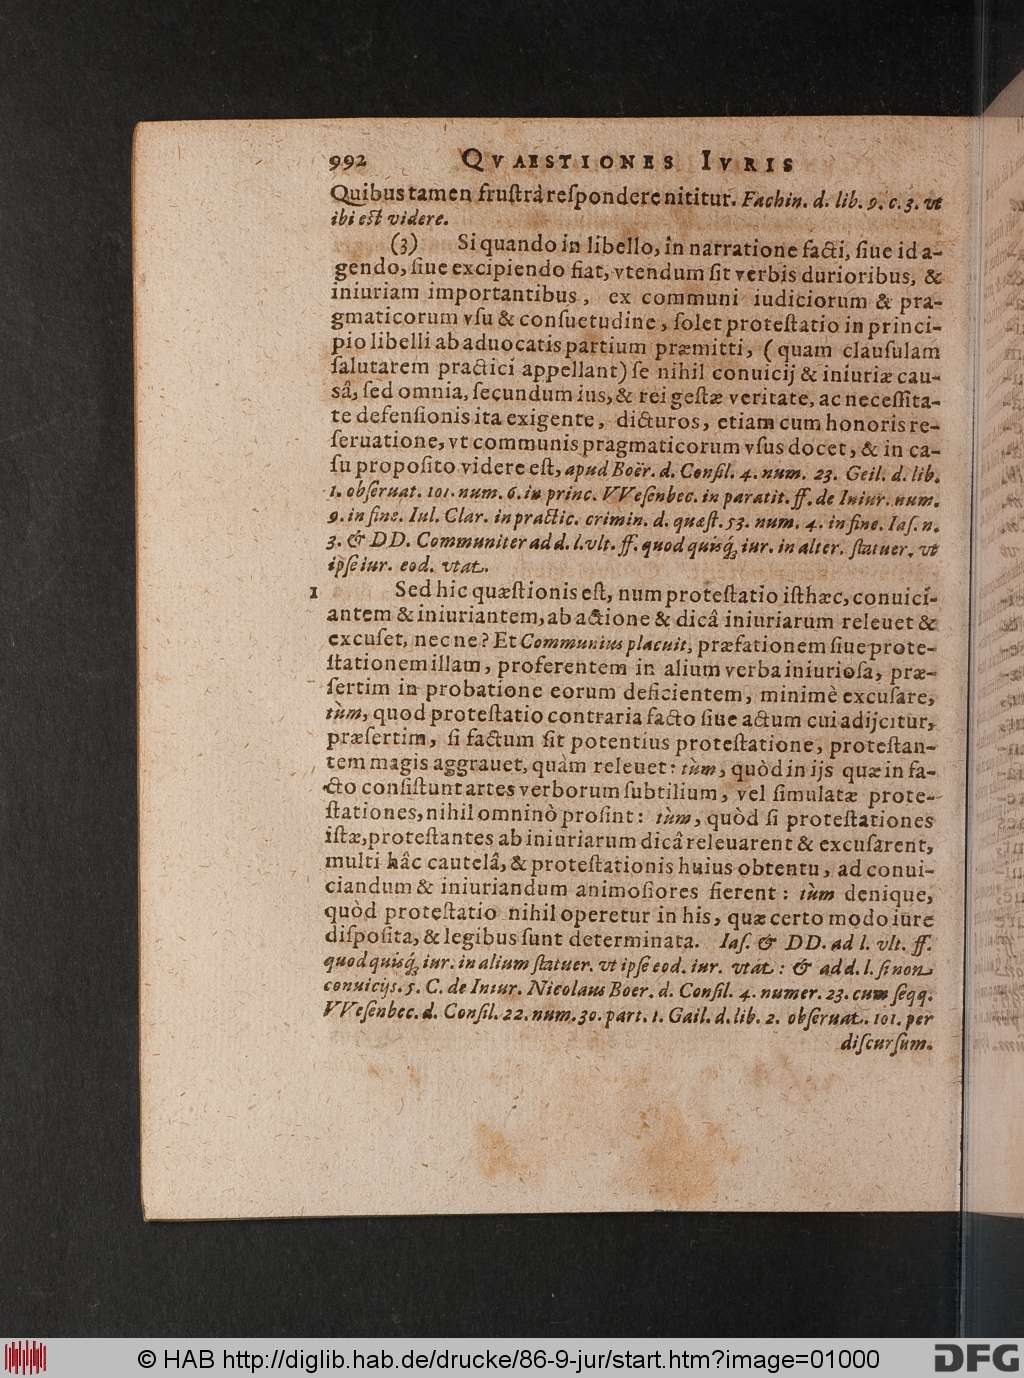 992 QVAESTIONES IVRIS
Quibus tamen fruſtrà reſpondere nititur. Fachin. d. lib. 9. c. 3. vt
ibi eſt videre.
(3) Si quando in libello, in narratione facti, ſiue id a-
gendo, ſiue excipiendo fiat, vtendum ſit verbis durioribus, &
iniuriam importantibus, ex communi iudiciorum & pra-
gmaticorum vſu & conſuetudine, ſolet proteſtatio in princi-
pio libelli ab aduocatis partium præmitti, (quam clauſulam
ſalutarem practici appellant) ſe nihil conuicij & iniuriæ cau-
sâ, ſed omnia, ſecundum ius, & rei geſtæ veritate, ac neceſſita-
te defenſionis ita exigente, dicturos, etiam cum honoris re-
ſeruatione, vt communis pragmaticorum vſus docet, & in ca-
ſu propoſito videre eſt, apud Boër. d. Conſil. 4. num. 23. Geil. d. lib.
1. obſeruat. 101. num. 6. in princ. VVeſenbec. in paratit. ff. de Iniur. num.
9. in fine. Iul. Clar. in practic. crimin. d. quæſt. 53. num. 4. in fine. Iaſ. n.
3. & DD. Communiter ad d. l. vlt. ff. quod quisq́; iur. in alter. ſtatuer. vt
ipſe iur. eod. vtat.
1 Sed hic quæſtionis eſt, num proteſtatio iſthæc, conuici-
antem & iniuriantem, ab actione & dicâ iniuriarum releuet &
excuſet, nec ne? Et Communius placuit, præfationem ſiue prote-
ſtationem illam, proferentem in alium verba iniurioſa, præ-
ſertim in probatione eorum deficientem, minimè excuſare,
tùm, quod proteſtatio contraria facto ſiue actum cui adijcitur,
præſertim, ſi factum ſit potentius proteſtatione, proteſtan-
tem magis aggrauet, quàm releuet: tùm, quòd in ijs quæ in fa-
cto conſiſtunt artes verborum ſubtilium, vel ſimulatæ prote-
ſtationes, nihil omninò proſint: tùm, quòd ſi proteſtationes
iſtæ, proteſtantes ab iniuriarum dicâ releuarent & excuſarent,
multi hâc cautelâ, & proteſtationis huius obtentu, ad conui-
ciandum & iniuriandum animoſiores fierent: tùm denique,
quòd proteſtatio nihil operetur in his, quæ certo modo iure
diſpoſita, & legibus ſunt determinata. Iaſ. & DD. ad l. vlt. ff.
quod quisq́; iur. in alium ſtatuer. vt ipſe eod. iur. vtat. : & ad d. l. ſi non
conuicijs. 5. C. de Iniur. Nicolaus Boer. d. Conſil. 4. numer. 23. cum ſeqq.
VVeſenbec. d. Conſil. 22. num. 30. part. 1. Gail. d. lib. 2. obſeruat. 101. per
diſcurſum.
© HAB http://diglib.hab.de/drucke/86-9-jur/start.htm?image=01000
DFG